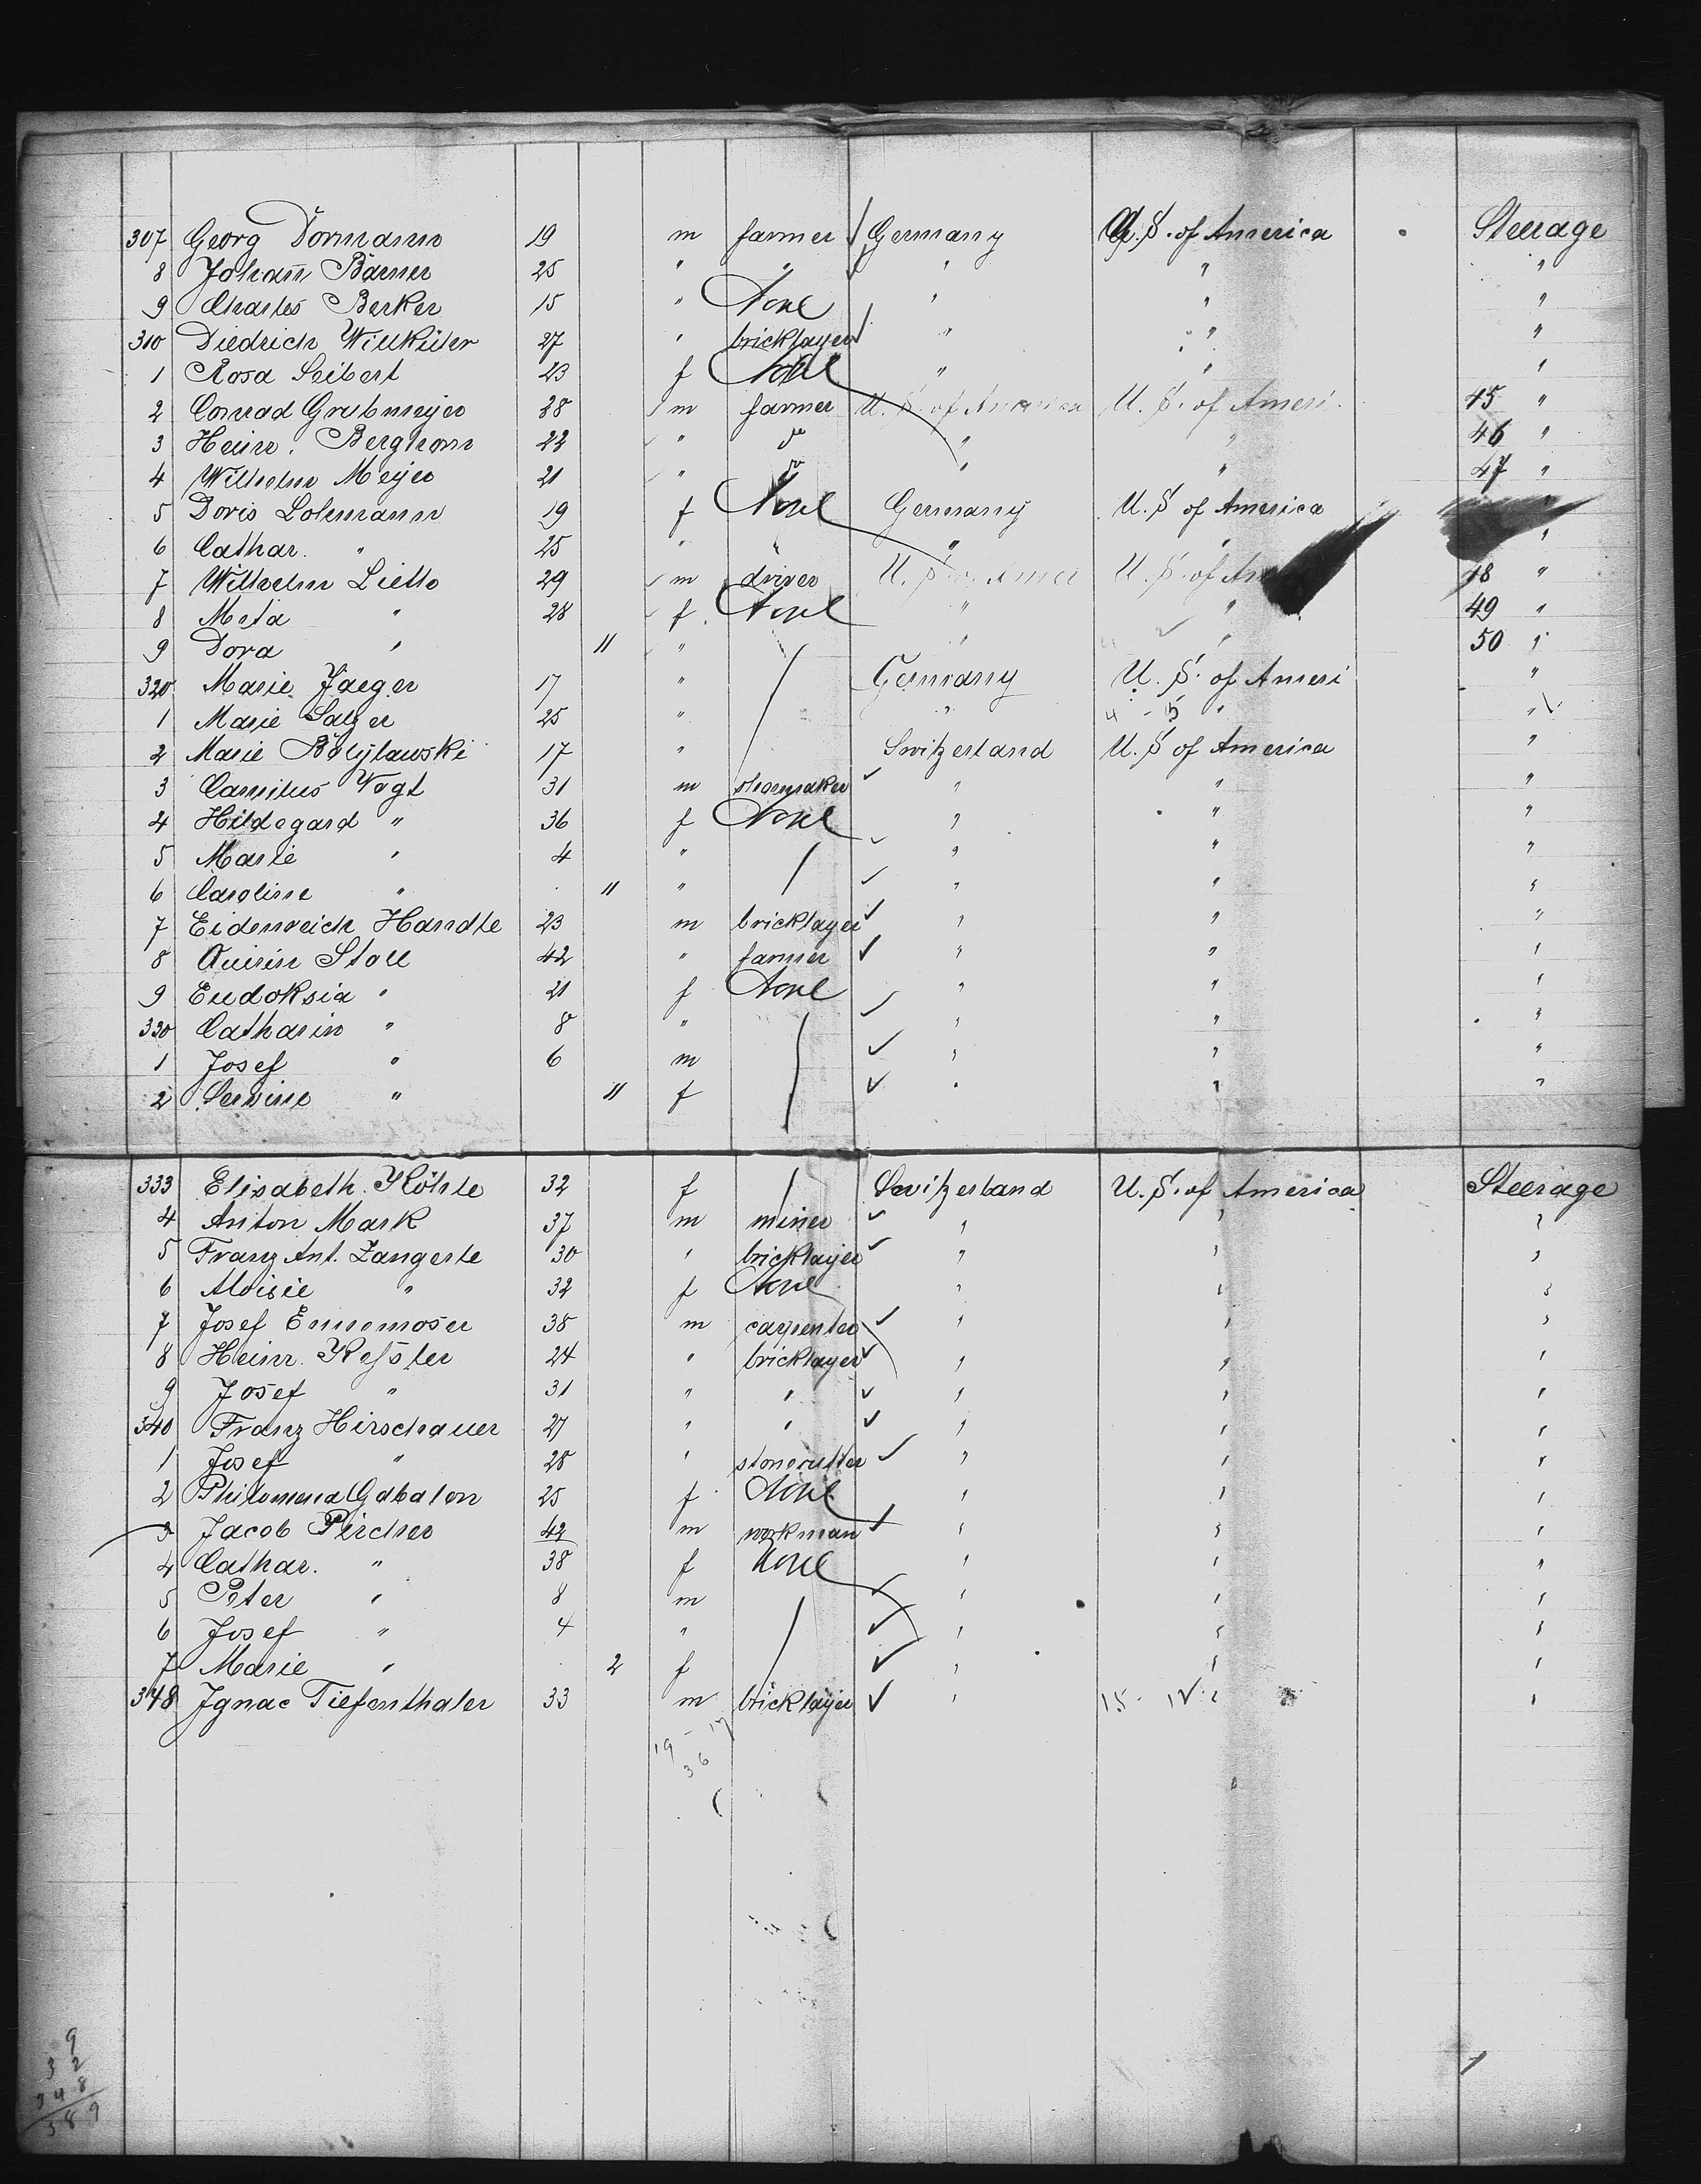 307 Georg Dormann 19 m farmer Germany U.S. of America Steerage
8 Johañ Barner 25 " " " " "
9 Charles Berker 15 " None " " "
310 Diedrich Willküter 27 " bricklayer " " "
1 Rosa Seibert 23 f None " " "
2 Conrad Grubmeyer 38 m farmer U.S. of America U.S. of Ameri. 45 "
3 Heinr. Berghorn 22 " do " " 46 "
4 Wilhelm Meyer 21 " do " " 47 "
5 Doris Lohmann 19 f None Germany U.S of America "
6 Cathar. " 25 " " " " "
7 Wilhelm Liello 29 m driver U.S. of Amer U.S. of Am 48 "
8 Meta " 28 f None " " 49 "
9 Dora " 11 " " " 50 "
320 Marie Jaeger 17 " Germany U.S. of Ameri "
1 Marie Salzer 25 " " 4 - 5 " "
2 Marie 17 " Switzerland U.S of America "
3 Camilus Vogt 31 m shoemaker " " "
4 Hildegard " 36 f None " " "
5 Marie " 4 " " " "
6 Caroline " 11 " " " "
7 Eidenreich Handle 23 m bricklayer " " "
8 Quirin Stoll 42 " farmer " " "
9 Eudoksia " 21 f None " " "
330 Catharin " 8 " " " "
1 Josef " 6 m " " "
2 " 11 f " " "
333 Elisabeth Köhle 32 f Switzerland U.S. of America Steerage
4 Anton Mark 37 m miner " " "
5 Franz Ant. Zangerle 30 " bricklayer " " "
6 Aloisie " 32 f None " " "
7 Josef Ennemoser 38 m carpenter " " "
8 Heinr. Keßler 24 " bricklayer " " "
9 Josef " 31 " " " " "
340 Franz Hirschauer 27 " " " " "
1 Josef " 28 " stonecutter " " "
2 Philomena Gabalon 25 f None " " "
3 Jacob Pircher 42 m workman " " "
4 Cathar. " 38 f None " " "
5 Peter " 8 m " " "
6 Josef " 4 " " " "
7 Marie " 2 f " " "
348 Ignac Tiefenthaler 33 m bricklayer " 15 - 1 " "
19 - 17
36
9
32
348
389